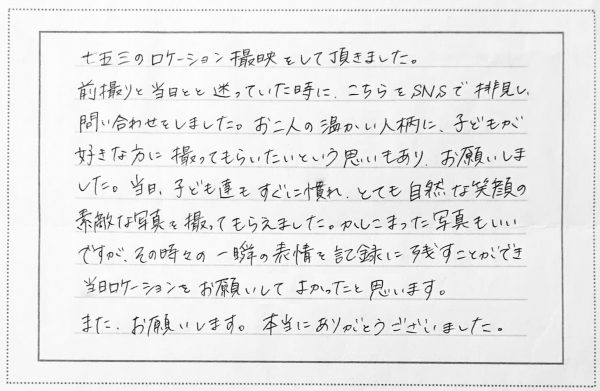 七五三のロケーション撮映をして頂きました。
前撮りと当日とと迷っていた時に、こちらをSNSで拝見し、
問い合わせをしました。お二人の温かい人柄に、子どもが
好きな方に撮ってもらいたいという思いもあり、お願いしま
した。当日、子ども達もすぐに慣れ、とても自然な笑顔の
素敵な写真を撮ってもらえました。かしこまった写真もいい
ですが、その時々の一瞬の表情を記録に残すことができ
当日ロケーションをお願いしてよかったと思います。
また、お願いします。本当にありがとうございました。